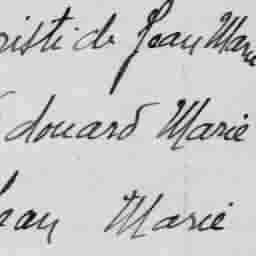 risti de Jean Marie
Edouard Marie
Jean Marie